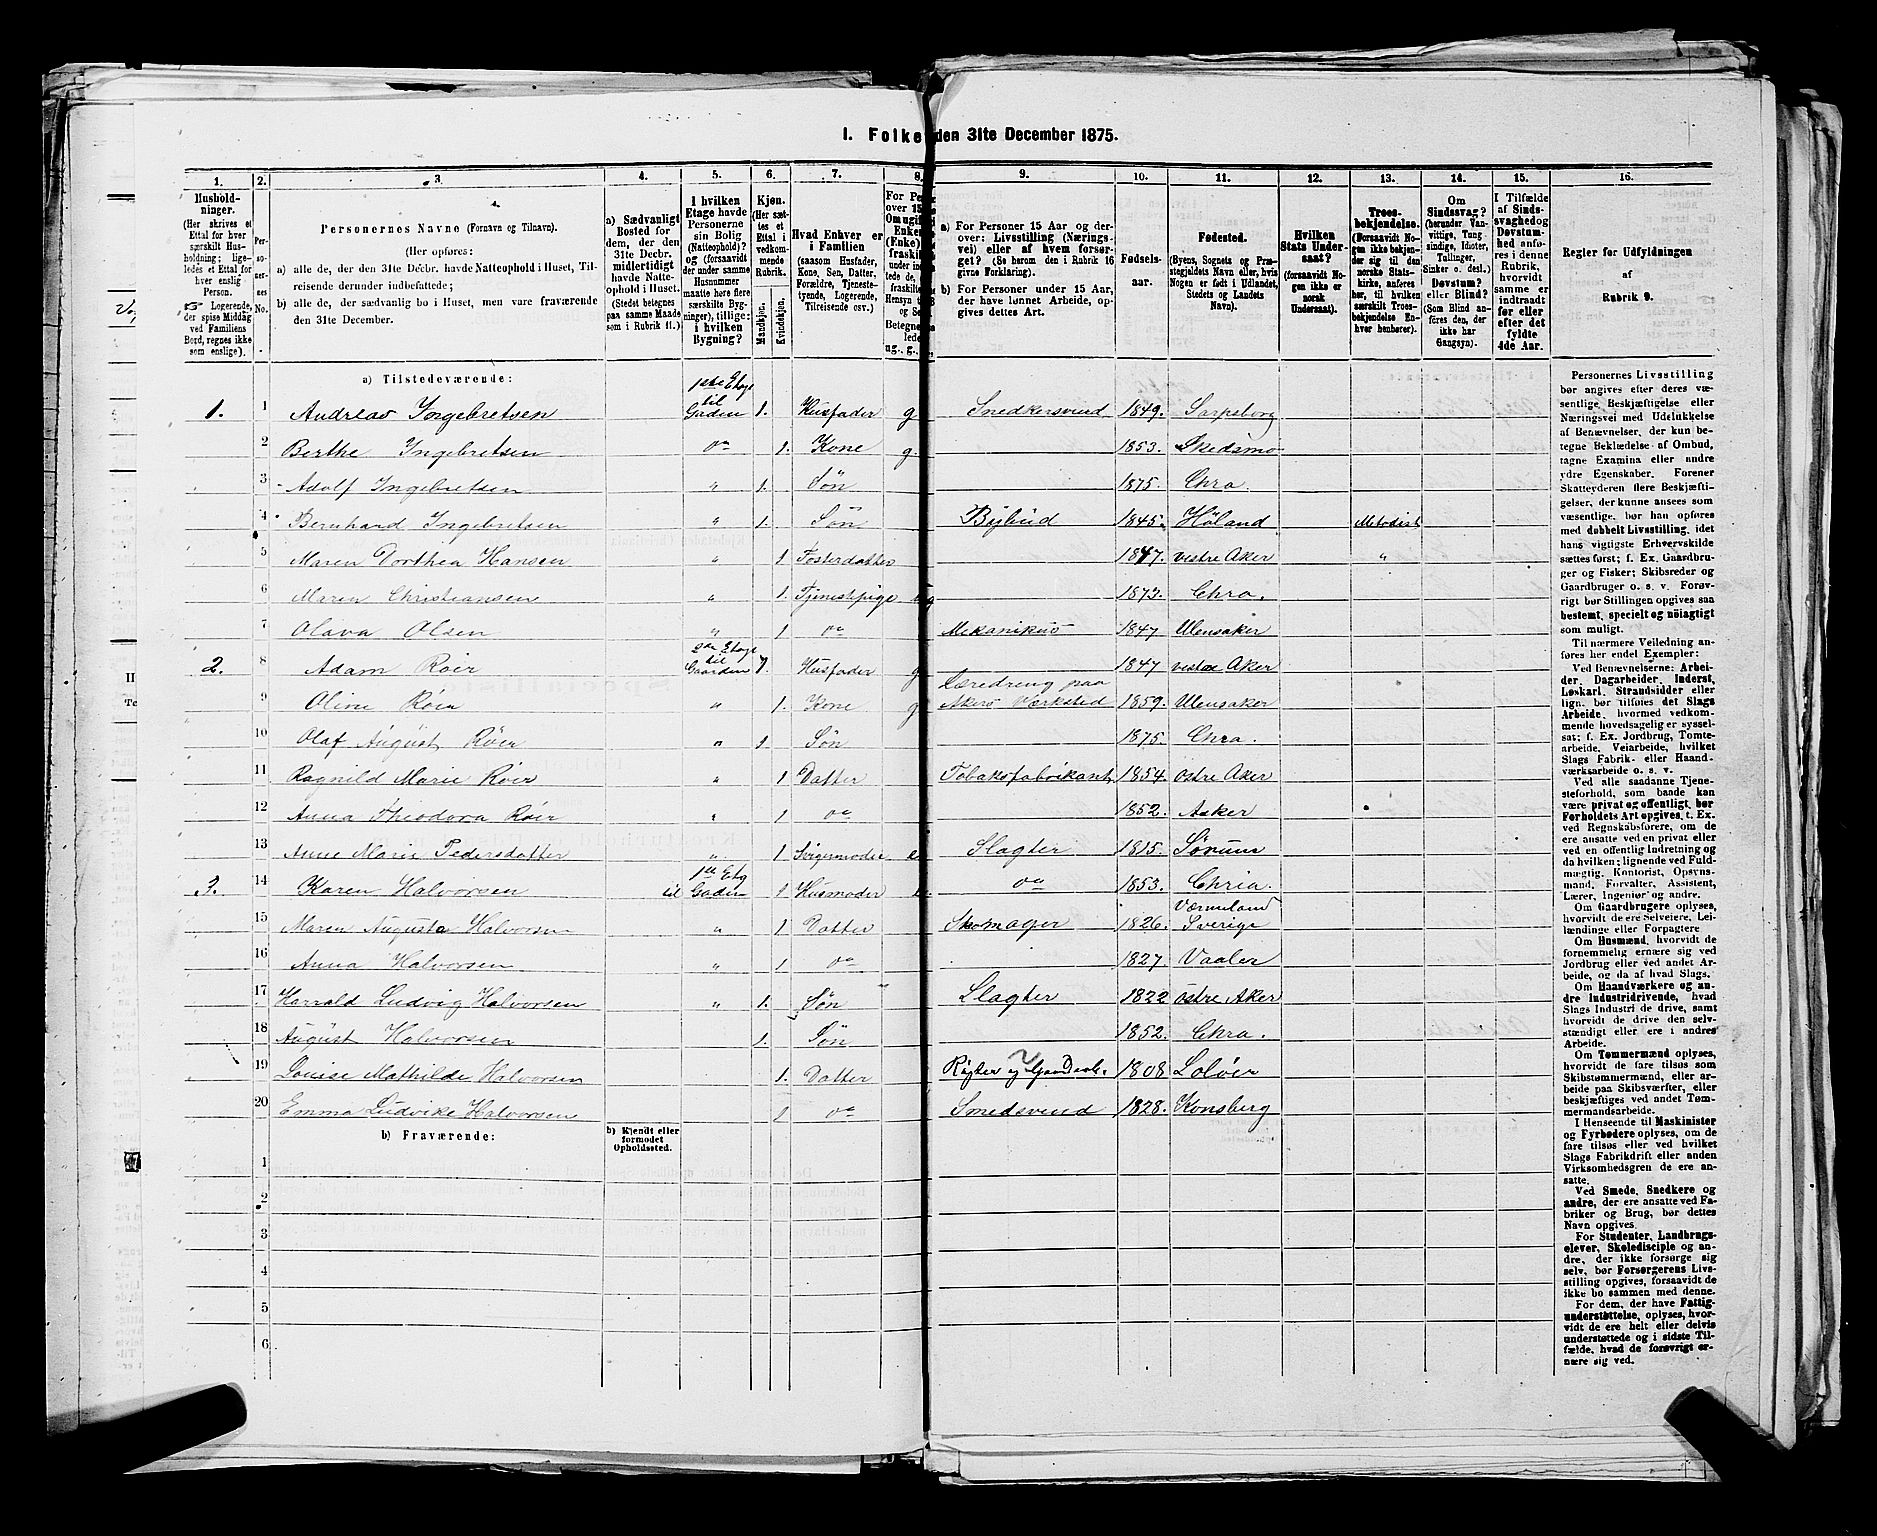 1. Folke den 31te December 1875.
1. 2. 3. 4. 5. 6. 7. 8. 9. 10. 11. 12. 13. 14. 15. 16.
Hushold-
ninger.
(Her skrives et
Ettal for hver
særskilt Hus-
holdning; lige-
ledes et Ettal for
hver enslig
Person.
Logerende,
der spise Middag
ved Familiens
Bord, regnes ikke
som enslige).
Per-
so-
ner-
nes
No.
Personernes Navne (Fornavn og Tilnavn).
(Her opføres:
a) alle de, der den 31te Decbr. havde Natteophold i Huset, Til-
reisende derunder indbefattede;
b) alle de, der sædvanlig bo i Huset, men vare fraværende
den 31te December.
a) Sædvanligt
Bosted for
dem, der den
31te Decbr.
midlertidigt
havde Natte-
ophold i Huset.
(Stedet betegnes
paa samme Maade
som i Rubrik 11.)
I hvilken
Etage havde
Personerne
sin Bolig
(Natteophold)?
og (forsaavidt
der under samme
Husnummer
maatte høre flere
særskilte Byg-
ninger), tillige:
i hvilken
Bygning?
Kjøn.
(Her sæt-
tes et
Ettal i
vedkom-
mende
Rubrik.
Mandkjøn.
Kvindekjøn.
Hvad Enhver er
i Familien
(saasom Husfader,
Kone, Søn, Datter,
Forældre, Tjeneste-
tyende, Logerende,
Tilreisende osv.)
For Pe
over 15
Omugif
Enken
(Enke)
fraskil
under in
tede, f
fraskilt
Hensyn t
og Se
Betegne
lede
ug., g.,
a) For Personer 15 Aar og der-
over: Livsstilling (Nærings-
vei) eller af hvem forsør-
get? (Se herom den i Rubrik 16
givne Forklaring).
b) For Personer under 15 Aar,
der have lønnet Arbeide, op-
gives dettes Art.
Fødsels-
aar.
Fødested.
(Byens, Sognets og Præ-
stegjeldets Navn eller, hvis
Nogen er født i Udlandet,
Stedets og Landets
Navn).
Hvilken
Stats Under-
saat?
(forsaavidt No-
gen ikke er
norsk
Undersaat).
Troes-
bekjendelse.
(Forsaavidt No-
gen ikke bekjen-
der sig til den
norske Stats-
kirke, anføres
her, til hvilken
særskilt Troes-
bekjendelse En-
hver henhører).
Om
Sindssvag?
(herunder Van-
vittige, Tung
sindige, Idioter,
Tallinger,
Sinker o. desl.)
Døvstum?
eller Blind?
(Som Blind an-
føres den, der
ikke har
Gangsyn).
I Tilfælde
af Sinds-
svaghed og
Døvstum-
hed anfø-
res i denne
Rubrik,
hvorvidt
samme er
indtraadt
før eller
efter det
fyldte
4de Aar.
Regler for Udfyldningen
af
Rubrik 9.
a) Tilstedeværende:
1. 1 Andreas Ingebretsen 1ste Etage til Gaden 1. Husfader g Snedkersvend 1849. Sarpsborg
2 Berthe Ingebretsen do 1. Kone g. 1853. Skedsmo
3 Adolf Ingebretsen " 1. Søn 1875. Chra.
4 Bernhard Ingebretsen " 1. Søn Bybud 1845. Høland Metodist
5 Maren Dorthea Hansen " 1 Fosterdatter 1847. vestre Aker "
6 Maren Christiansen " 1. Tjenestpige 1873. Chra.
7 Olava Olsen " 1 do Mekanikus 1847 Ulensaker
2. 8 Adam Røer 2den Etage til Gaarden 1. Husfader g 1847 vestre Aker
9 Oline Røer " 1. Kone g Læredreng paa Akers Værksted 1859. Ulensaker
10 Olaf August Røer " 1. Søn 1875. Chra.
11 Ragnild Marie Røer " 1 Datter Tobaksfabrikant 1854. østre Aker
12 Anna Theodora Røer " 1 do 1852. Asker
13 Anne Marie Pedersdatter " 1 Svigermoder e Slagter 1815. Sørum
3. 14 Karen Halvorsen 1ste Etg til Gaden 1. Husmoder do 1853. Chria.
15 Maren Augusta Halvorsen " 1. Datter Skomager 1826. Værmeland Sverige
16 Anna Halvorsen " 1 do 1827. Vaaler
17 Harrald Ludvig Halvorsen " 1. Søn Slagter 1822 østre Aker
18 August Halvorsen 1. Søn 1852. Chra.
19 Louise Mathilde Halvorsen 1. Datter 1808 Soløer
20 Emma Ludvike Halvorsen 1 do Smedsvend 1828. Konsberg
b) Fraværende:
b) Kjendt eller
formodet
Opholdssted.
1
2
3
4
5
6
Personernes Livsstilling
bør angives efter deres væ-
sentlige Beskjæftigelse eller
Næringsvei med Udelukkelse
af Benævnelser, der kun be-
tegne Beklædelse af Ombud,
tagne Examina eller andre
ydre Egenskaber. Forener
Skatteyderen flere Beskjæfti-
gelser, der kunne ansees som
væsentlige, bør han opføres
med dobbelt Livsstilling, idet
hans vigtigste Erhvervskilde
sættes først; f. Ex. Gaardbru-
ger og Fisker; Skibsreder og
Gaardbruger o. s. v. Forøv-
rigt bør Stillingen opgives saa
bestemt, specielt og nöiagtigt
som muligt.
Til nærmere Veiledning an-
føres her endel Exempler:
Ved Benævnelserne: Arbei-
der, Dagarbeider, Inderst,
Løskarl, Strandsidder eller
lign. bør tilføies det Slags
Arbeide, hvormed vedkom-
mende hovedsagelig er syssel-
sat; f. Ex. Jordbrug, Tomte-
arbeide, Veiarbeide, hvilket
Slags Fabrik- eller Haand-
værksarbeide o. s. v.
Ved alle saadanne Tjene-
steforhold, som baade kan
være privat og offentligt, bør
Forholdets Art opgives, t. Ex.
ved Regnskabsførere, om de
ere ansatte ved en privat eller
ved en offentlig Indretning og
da hvilken; lignende ved Fuld-
mægtig, Kontorist, Opsyns-
mand, Forvalter, Assistent,
Lærer, Ingeniør og andre.
Om Gaardbrugere oplyses,
hvorvidt de ere Selveiere, Lei-
lændinge eller Forpagtere.
Om Husmænd, hvorvidt de
fornemmelig ernære sig ved
Jordbrug eller ved andet Ar-
beide, og da af hvad Slags.
Om Haandværkere og an-
dre Industridrivende, hvad
Slags Industri de drive, samt
hvorvidt de drive den selv-
stændigt eller ere i andres
Arbeide.
Om Tømmermænd oplyses,
hvorvidt de fare tilsøs som
Skibstømmermænd, eller ar-
beide paa Skibsværfter, eller
beskjæftiges ved andet Tøm-
mermandsarbeide.
I Henseende til Maskinister
og Fyrbødere oplyses, om de
fare tilsøs eller ved hvilket
Slags Fabrikdrift eller anden
Virksomhedsgren de ere an-
satte.
Ved Smede, Snedkere og
andre, der ere ansatte ved Fa-
briker og Brug, bør dettes
Navn opgives.
For Studenter, Landbrugs-
elever, Skoledisciple og an-
dre, der ikke forsørge sig
selv, bør Forsørgerens Livs-
stilling opgives, forsaavidt de
ikke bo sammen med denne.
For dem, der have Fattig-
understøttelse, oplyses, hvor-
vidt de ere helt eller delvis
understøttede og i sidste Til-
fælde, hvad de forøvrigt er-
nære sig ved.